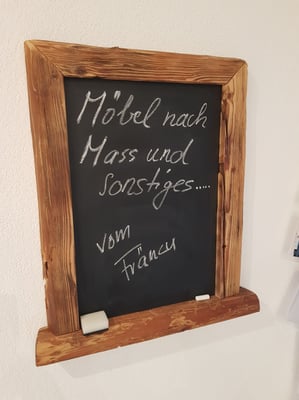 Möbel nach
Mass und
sonstiges.....
vom
Fräncu